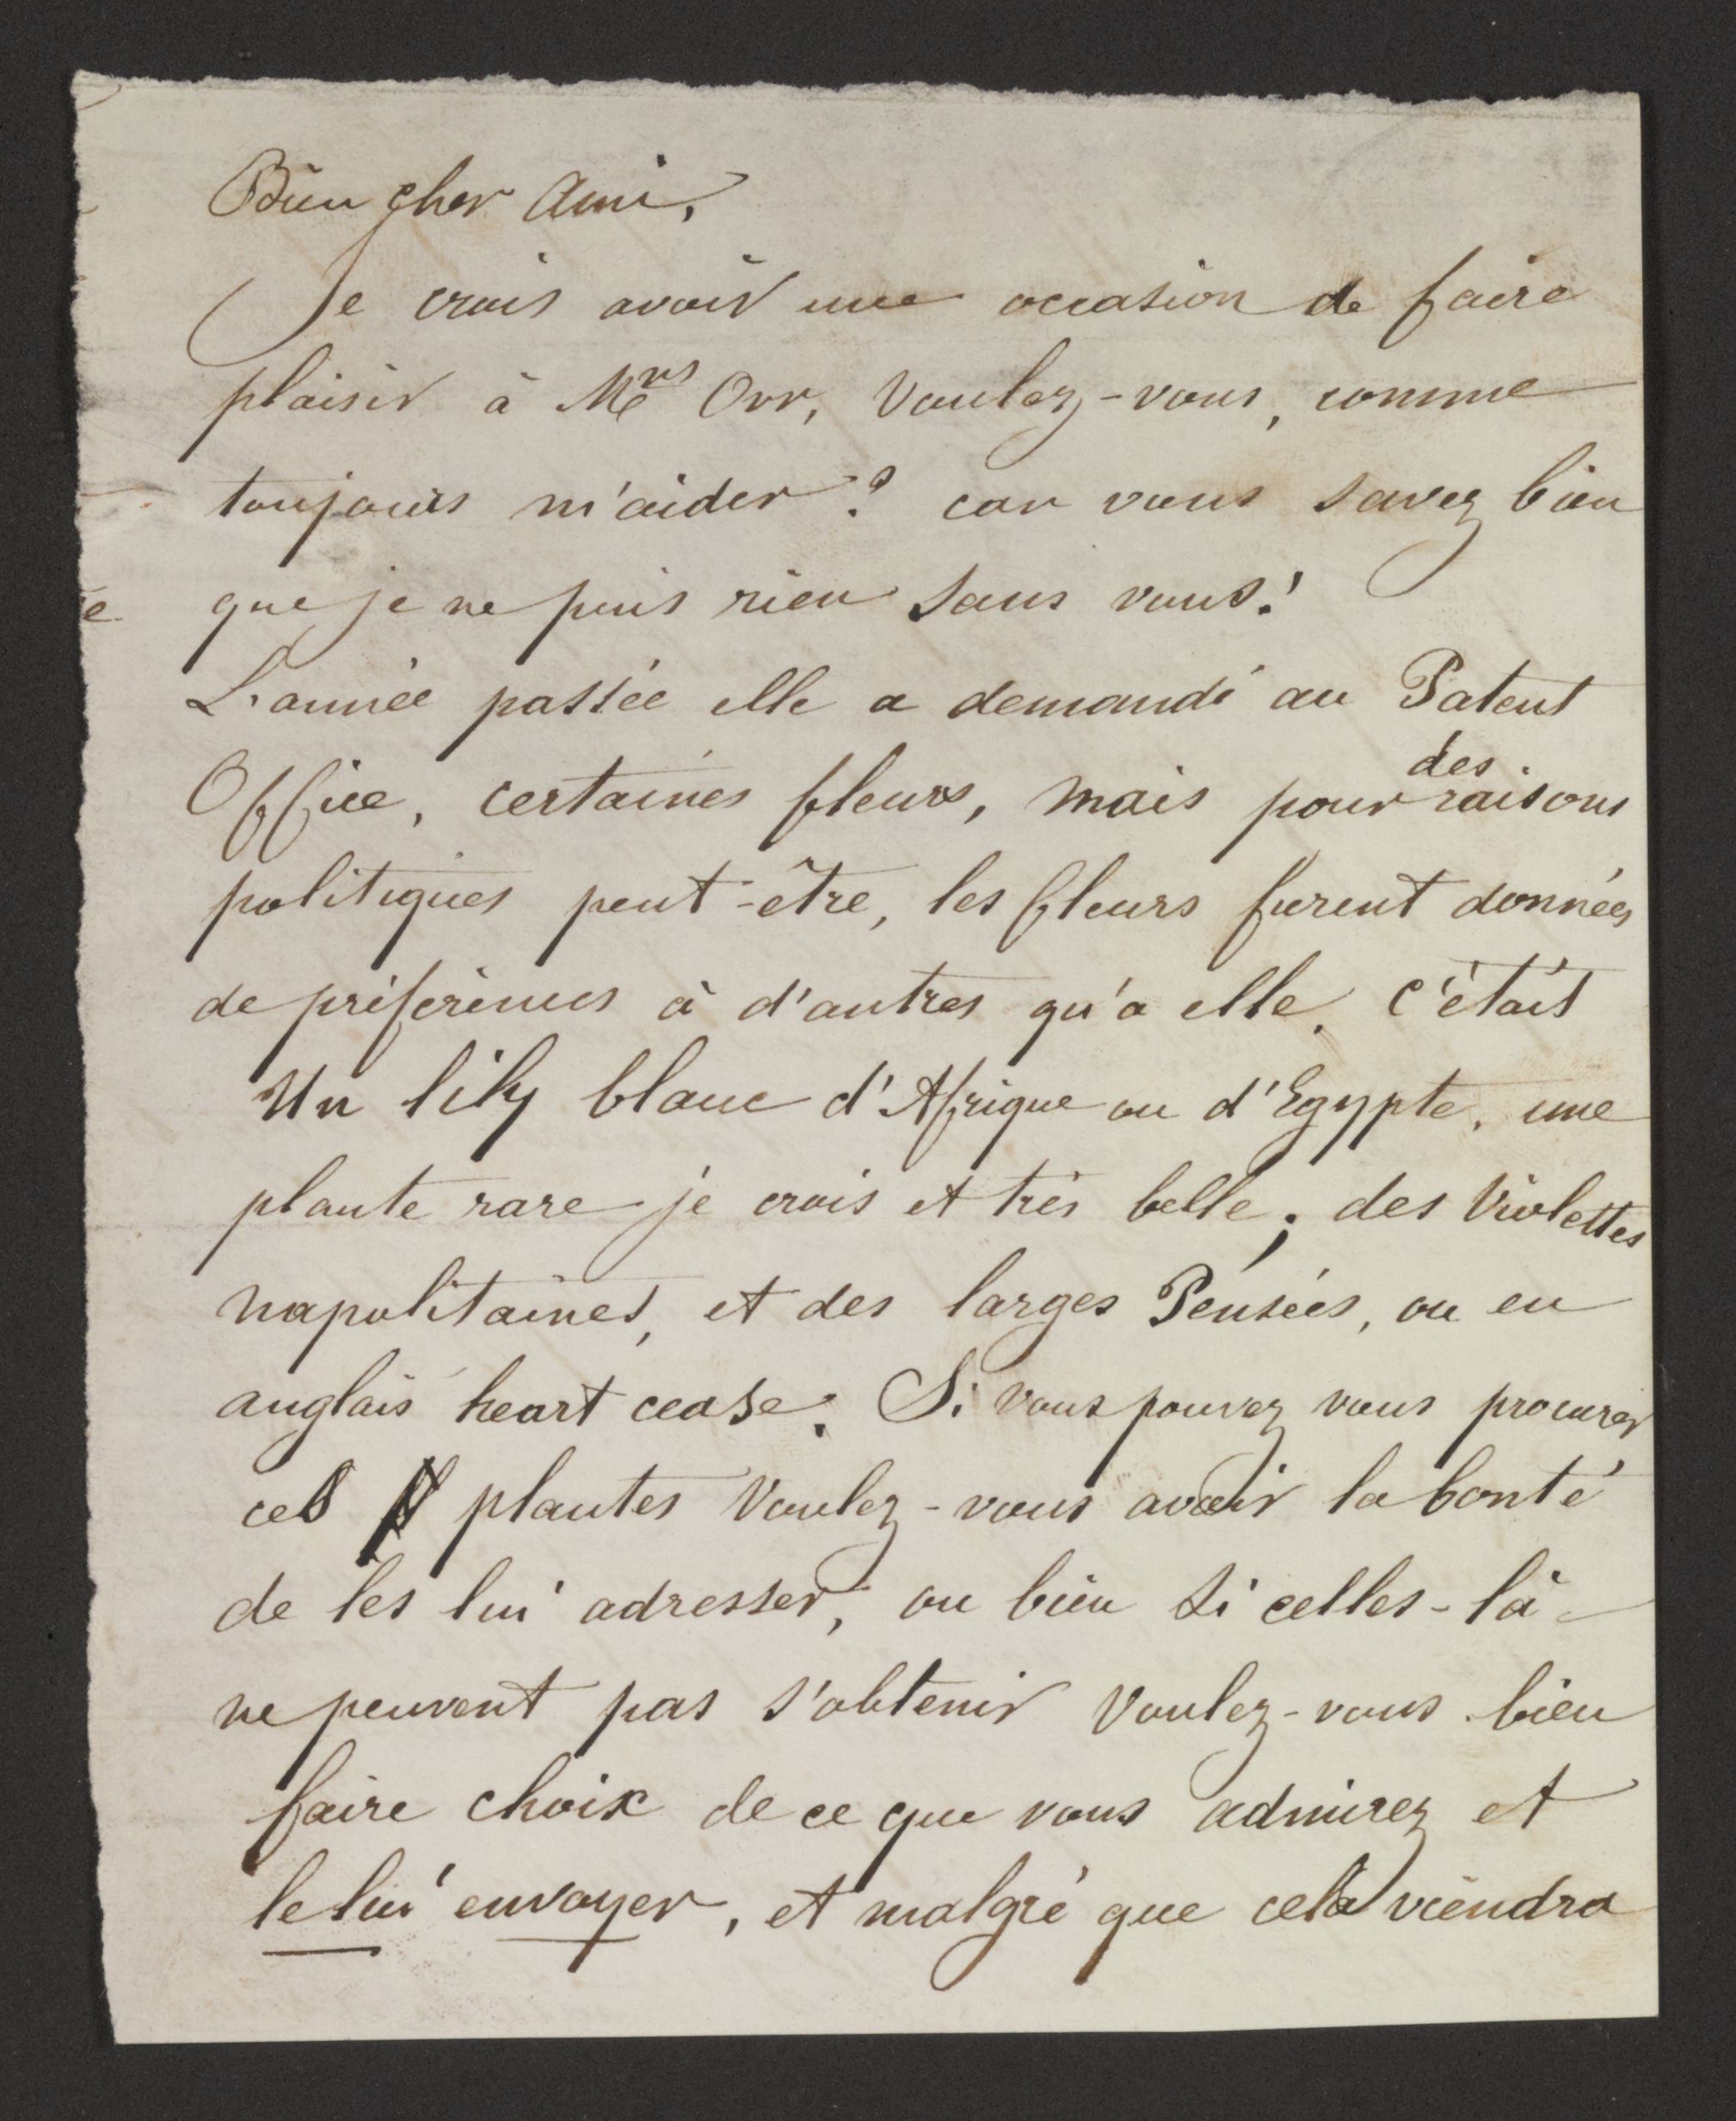 Bien cher Ami,
Je crois avoir une occasion de faire
plaisir à Mrs Orr, Voulez-vous, comme
toujours m'aider? car vous savez bien
que je ne puis rien sans vous!
L'année passée elle a demandé au Patent
Office, certaines fleurs, mais pour des raisons
politiques peut-être, les fleurs furent données
de préférences à d'autres qu'a elle. C'était
Un lily blanc d'Afrique ou d'Egypte, une
plante rare je crois et très belle; des Violettes
napolitaines, et des larges Pensées, ou en
anglais heart cease. Si vous pouvez vous procurer
ces plantes Voulez-vous avoir la bonté
de les lui adresser, ou bien si celles-là
ne peuvent pas s'obtenir Voulez-vous bien
faire choix de ce que vous admirez et
le lui envoyer, et malgré que cela viendra